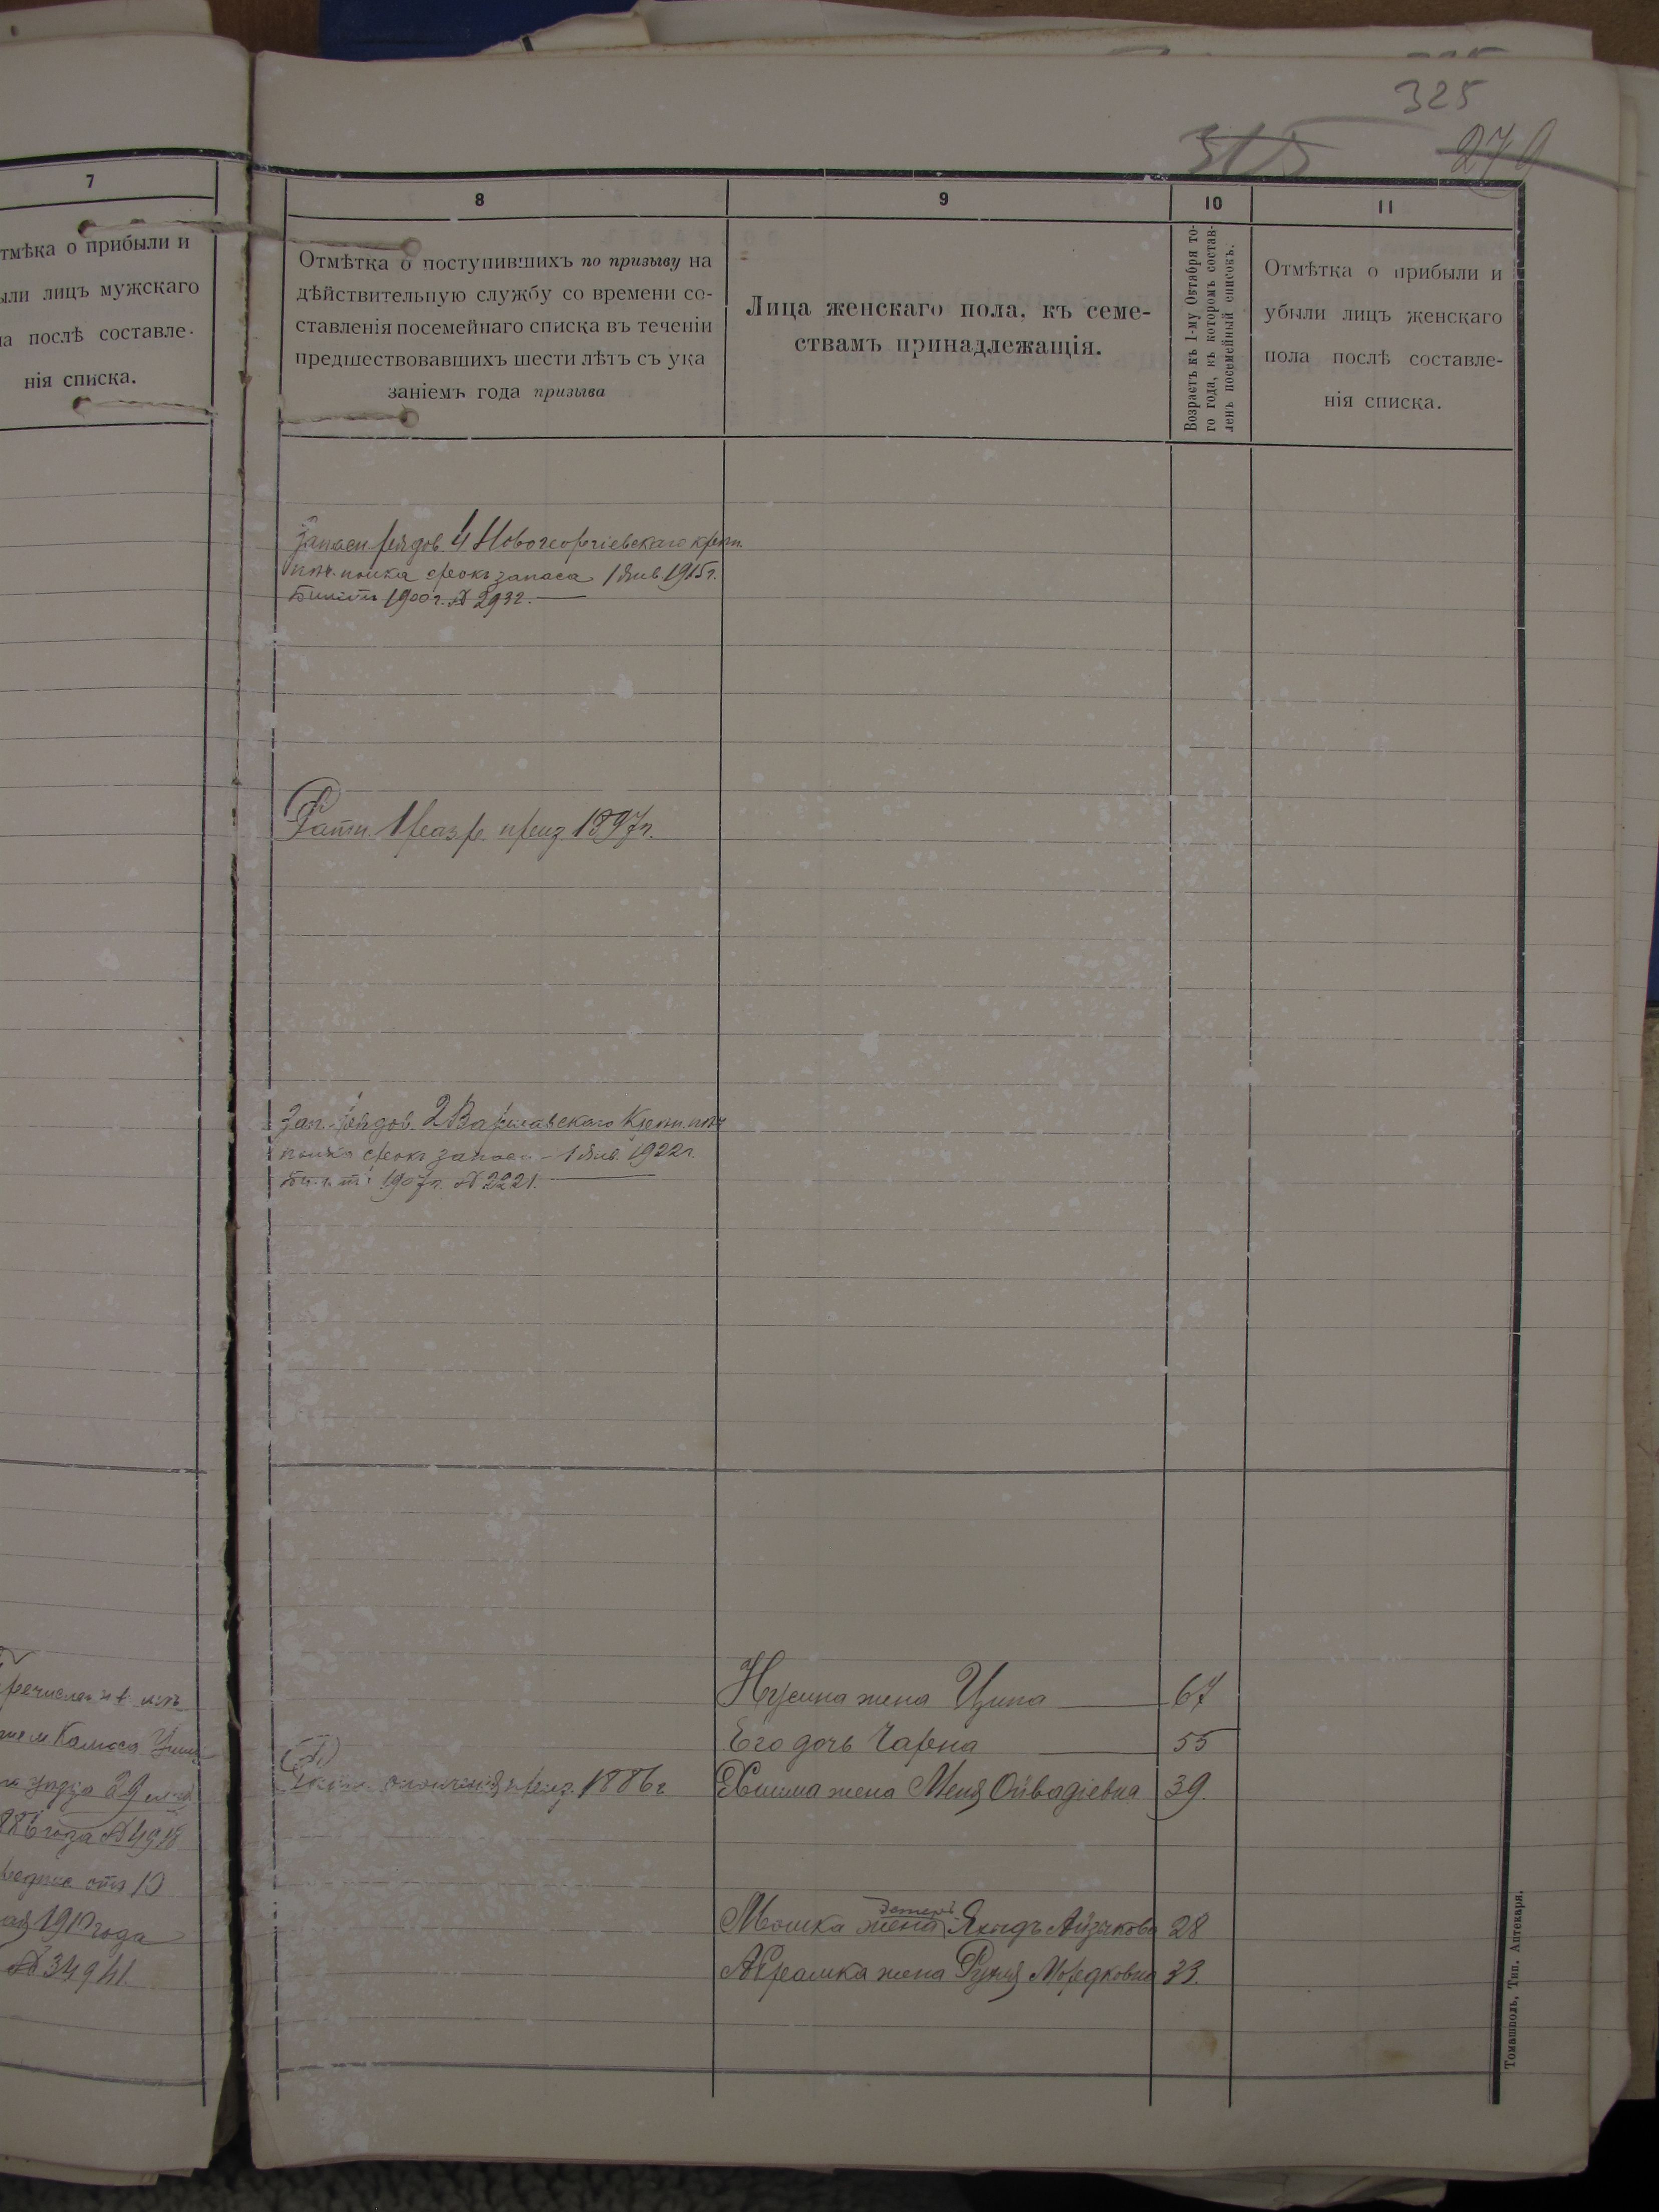 325
315
279
7
8
9
10
11
тмѣка о прибыли и
ыли лицъ мужскаго
ла послѣ составле-
нія списка.
Отмѣтка о поступившихъ по призыву на
дѣйствительную службу со времени со-
ставленія посемейнаго списка въ теченіи
предшествовавшихъ шести лѣтъ съ ука
заніемъ года призыва
Лица женскаго пола, къ семе-
ствамъ принадлежащія.
Возрастъ къ 1-му Октября то-
го года, къ которомъ состав-
ленъ посемейный списокъ.
Отмѣтка о прибыли и
убыли лицъ женскаго
пола послѣ составле-
нія списка.
Запасн. рядов. 4 Новогеоргіевскаго крѣп.
пѣх. полка срокъ запаса 1 Янв 1915 г.
Билетъ 1900 г. № 2932.
Ратн. 1 разр. приз. 1897 г.
Зап. рядов. 2 Варшавскаго Крѣп. пѣх
полка срокъ запаса - 1 Янв. 1922 г.
Билетъ 1907 г. № 2221.
Нусина жена Ципа 67
Его дочь Чарна 55
приз. 1886 г
Хиима жена Меня Овадіевна 39.
Эстеръ
Мошка жена Яхидъ Айзикова 28
Абрамка жена Рухля Мордковна 33.
речислен
Калюса
уѣзда 29
886 года № 4918
отъ 10
ая 1910 года
№ 34941.
Томашполь, Тип. Аптекаря.